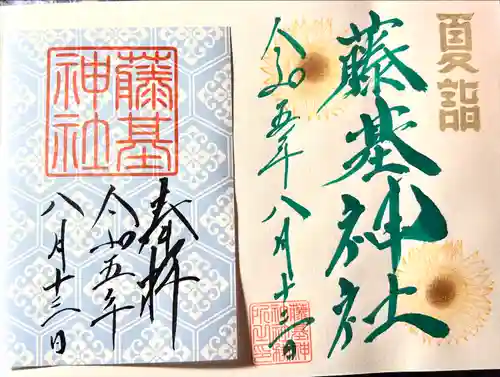 夏詣
藤基神社
令和五年八月十三日
藤基
神社
奉拝
令和五年
八月十三日